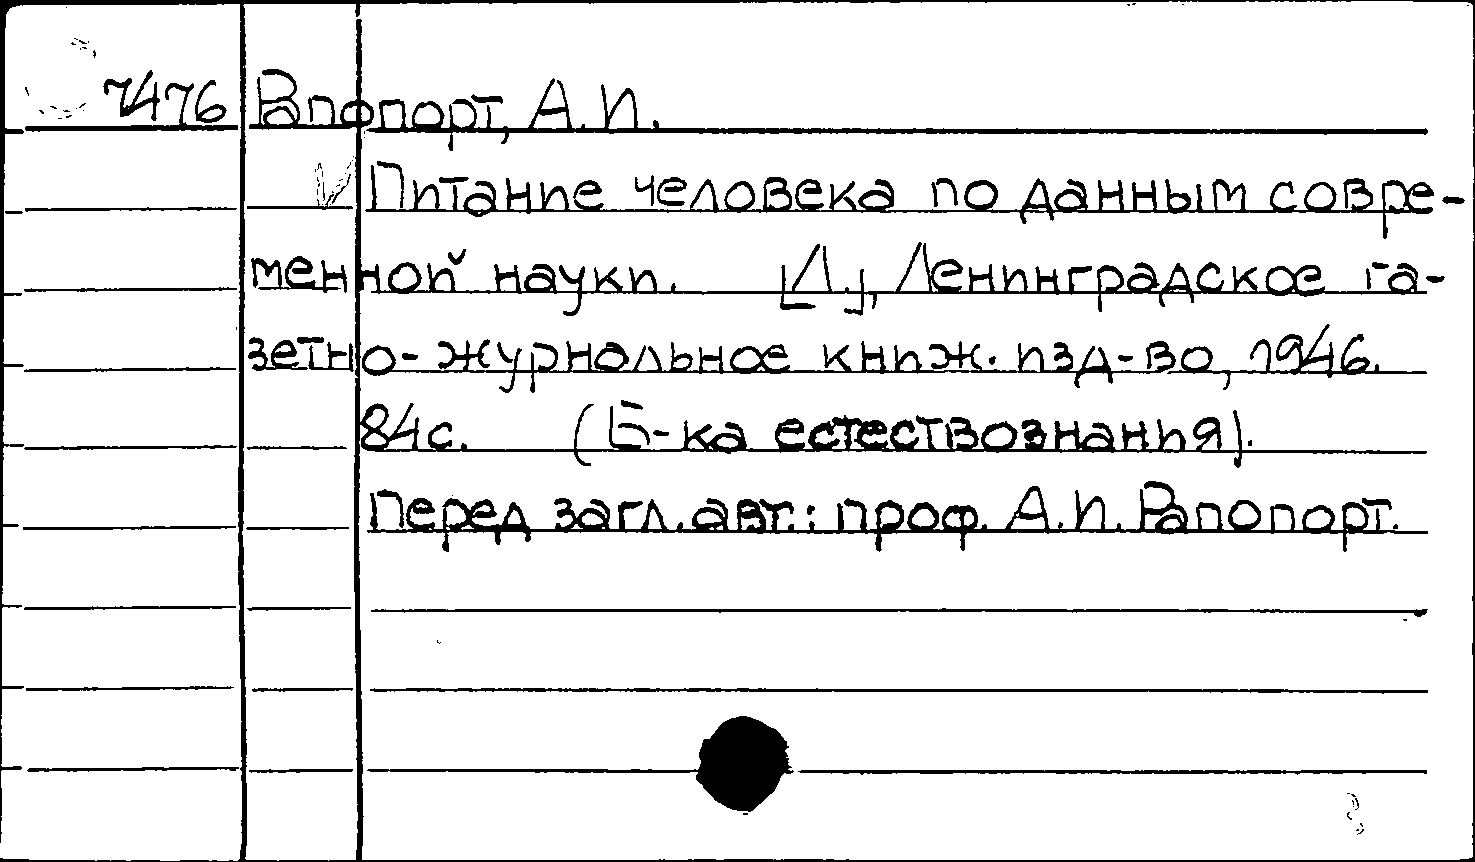 7476 Рапопорт, А.И.
Питание человека по данным совре-
менной науки. [Л.], Ленинградское га-
зетно-журнальное книж. изд-во, 1946.
84с. (Б-ка естествознания).
Перед загл. авт.: проф. А.И. Рапопорт.